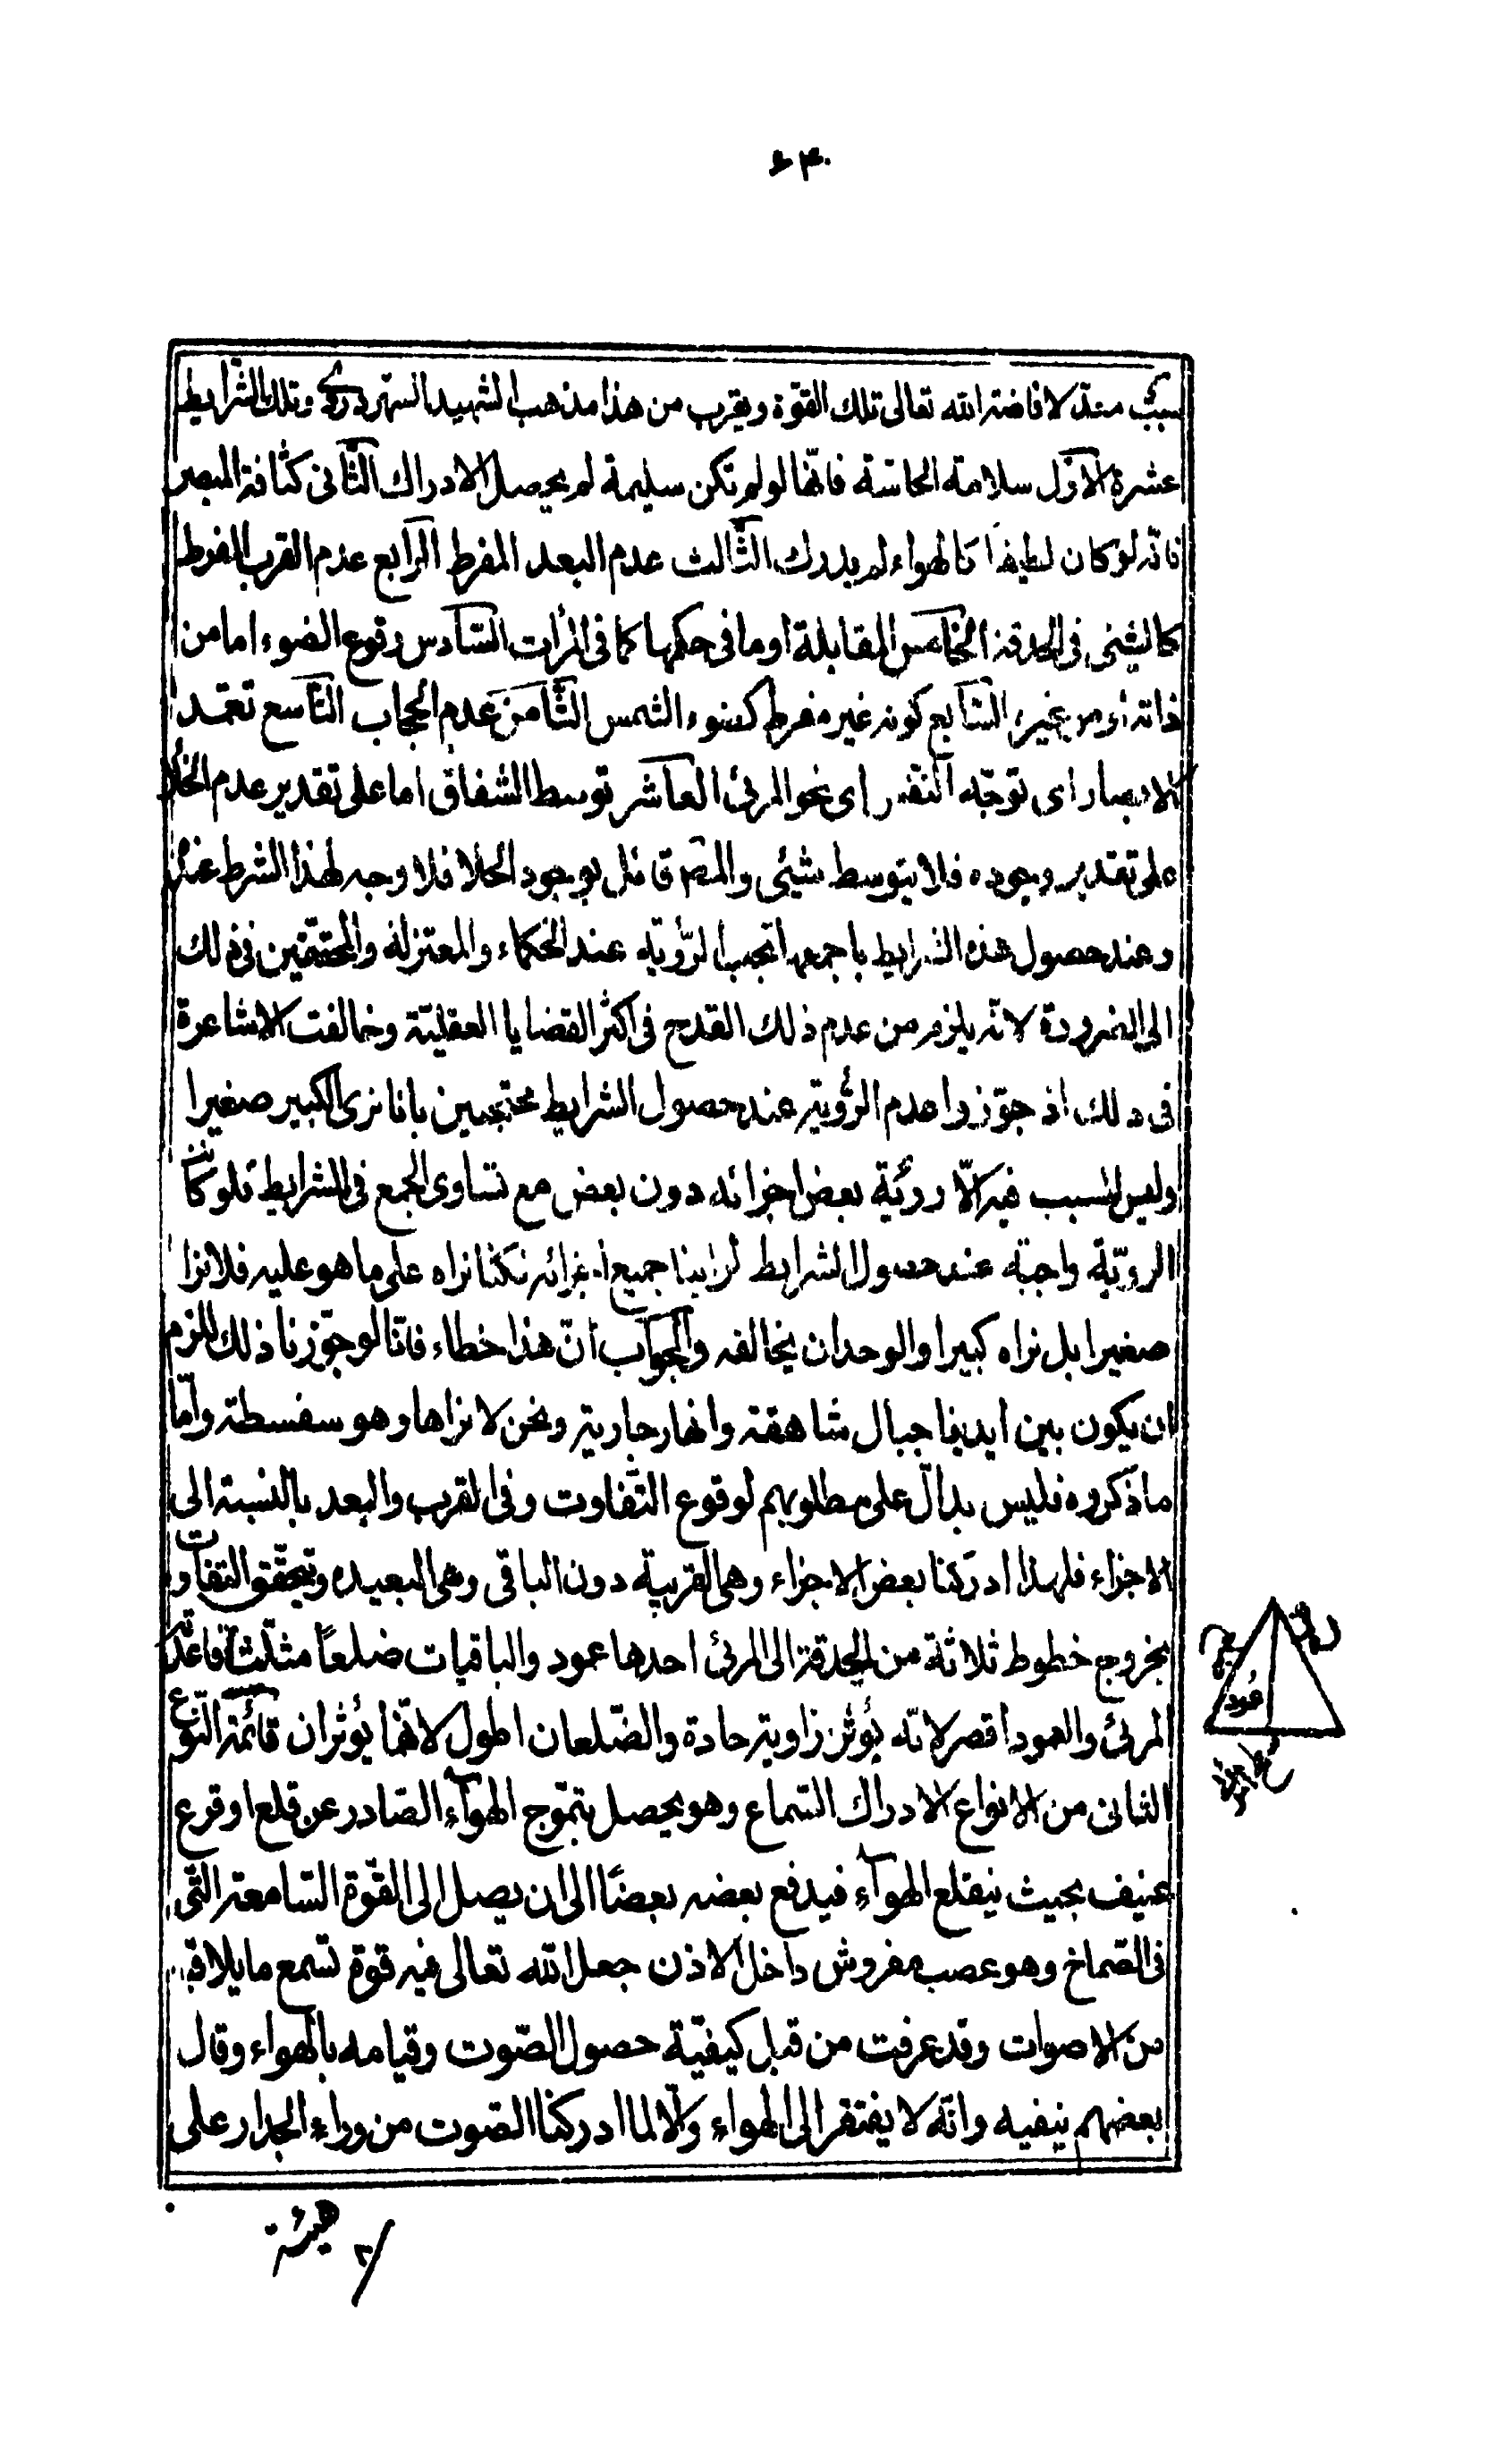 ۶۴
سبب معد لافاضة الله تعالى تلك القوّة ويقرب من هذا مذهب الشهيد السهروردى وتلك الشرايط
عشرة الاوّل سلامة الحاسّة فانّها لو لم تكن سليمة لم يحصل الادراك الثّانى كثافة المبصر
فانّه لو كان لطيفاً كالهواء لم يدرك الثّالث عدم البعد المفرط الرابع عدم القرب المفرط
كالشيئى فى الحدقة الخامس المقابلة او ما فى حكمها كما فى المرأت السّادس وقوع الضوء اما من
ذاته او من غيره السّابع كونه غير مفرط كضوء الشمس الثّامن عدم الحجاب التّاسع تعمّد
الابصار اى توجّه النفس اى نحو المرئى العاشر توسط الشفاف اما على تقدير عدم الخلأ
على تقدير وجوده فلا يتوسط شيئى والمصّ قائل بوجود الخلا فلا وجه لهذا الشرط عنده
وعند حصول هذه الشرايط باجمعها تجب الرّؤية عند الحكماء والمعتزلة والمحققين فى ذلك
الى الضرورة لانّه يلزم من عدم ذلك القدح فى اكثر القضايا العقليّة وخالفت الاشاعرة
فى ذلك اذ جوّزوا عدم الرّؤية عند حصول الشرايط محتجين بانا نرى الكبير صغيرا
وليس السبب فيه الّا رؤية بعض اجزائه دون بعض مع تساوى الجمع فى الشرايط فلو كانت
الرويّة واجبة عند حصول الشرايط لراينا جميع اجزائه فكنّا نراه على ما هو عليه فلا نرا
صغيرا بل نراه كبيرا والوحدان يخالفه والجواب انّ هذا خطاء فانّا لو جوّزنا ذلك للزم
ان يكون بين ايدينا جبال شاهقة وانهار جارية ونحن لا نراها وهو سفسطة وامّا
ما ذكروه فليس بدالّ على مطلوبهم لوقوع التّفاوت وفى القرب والبعد بالنسبة الى
الاجزاء فلهذا ادركنا بعض الاجزاء وهى القريبة دون الباقى وهى البعيده ويتحقّق التفاوت
بخروج خطوط ثلاثة من الحدقة الى المرئى احدها عمود والباقيات ضلعاً مثلّث قاعدته
المرئى والعمود اقصر لانّه يؤثر زاوية حادة والضّلعان اطول لانّهما يؤثران قائمة النّوع
الثانى من الانواع الادراك السّماع وهو يحصل بتموّج الهوآء الصّادر عن قلع او قرع
عنيف بحيث ينقلع الهوآء فيدفع بعضه بعضًا الى ان يصل الى القّوة السّامعة الّتى
فى الصّماخ وهو عصب مفروش داخل الاذن جعل الله تعالى فيه قوة تسمع ما يلاقيه
من الاصوات وقد عرفت من قبل كيفيّة حصول الصّوت وقيامه بالهواء وقال
بعضهم ينفيه وانّه لا يفتقر الى الهواء والّا لما ادركنا الصّوت من وراء الجدار على
عمود
هيئة